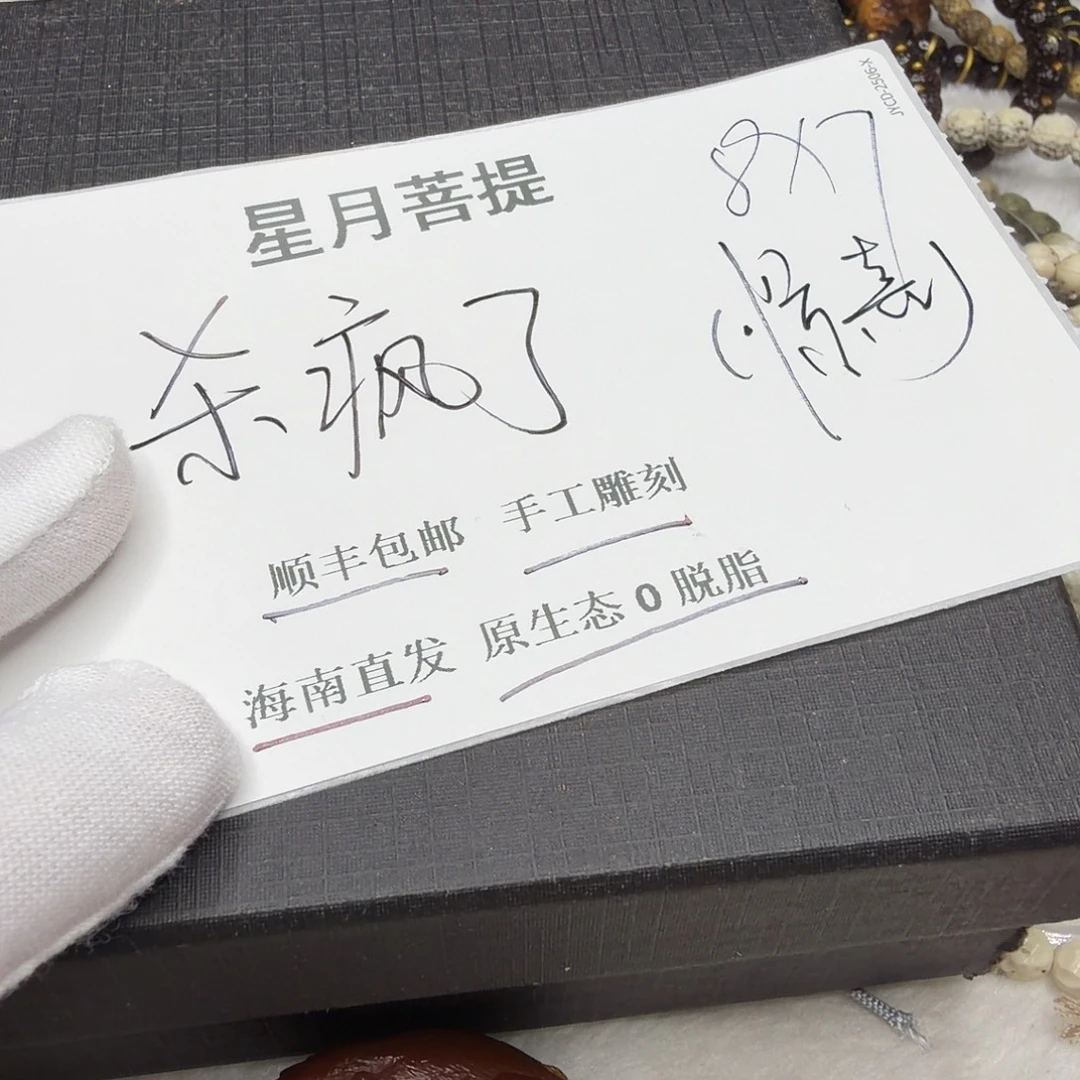 JYCD-2506-X
星月菩提
8X7
杀疯了
顺丰包邮 手工雕刻
海南直发 原生态 0 脱脂